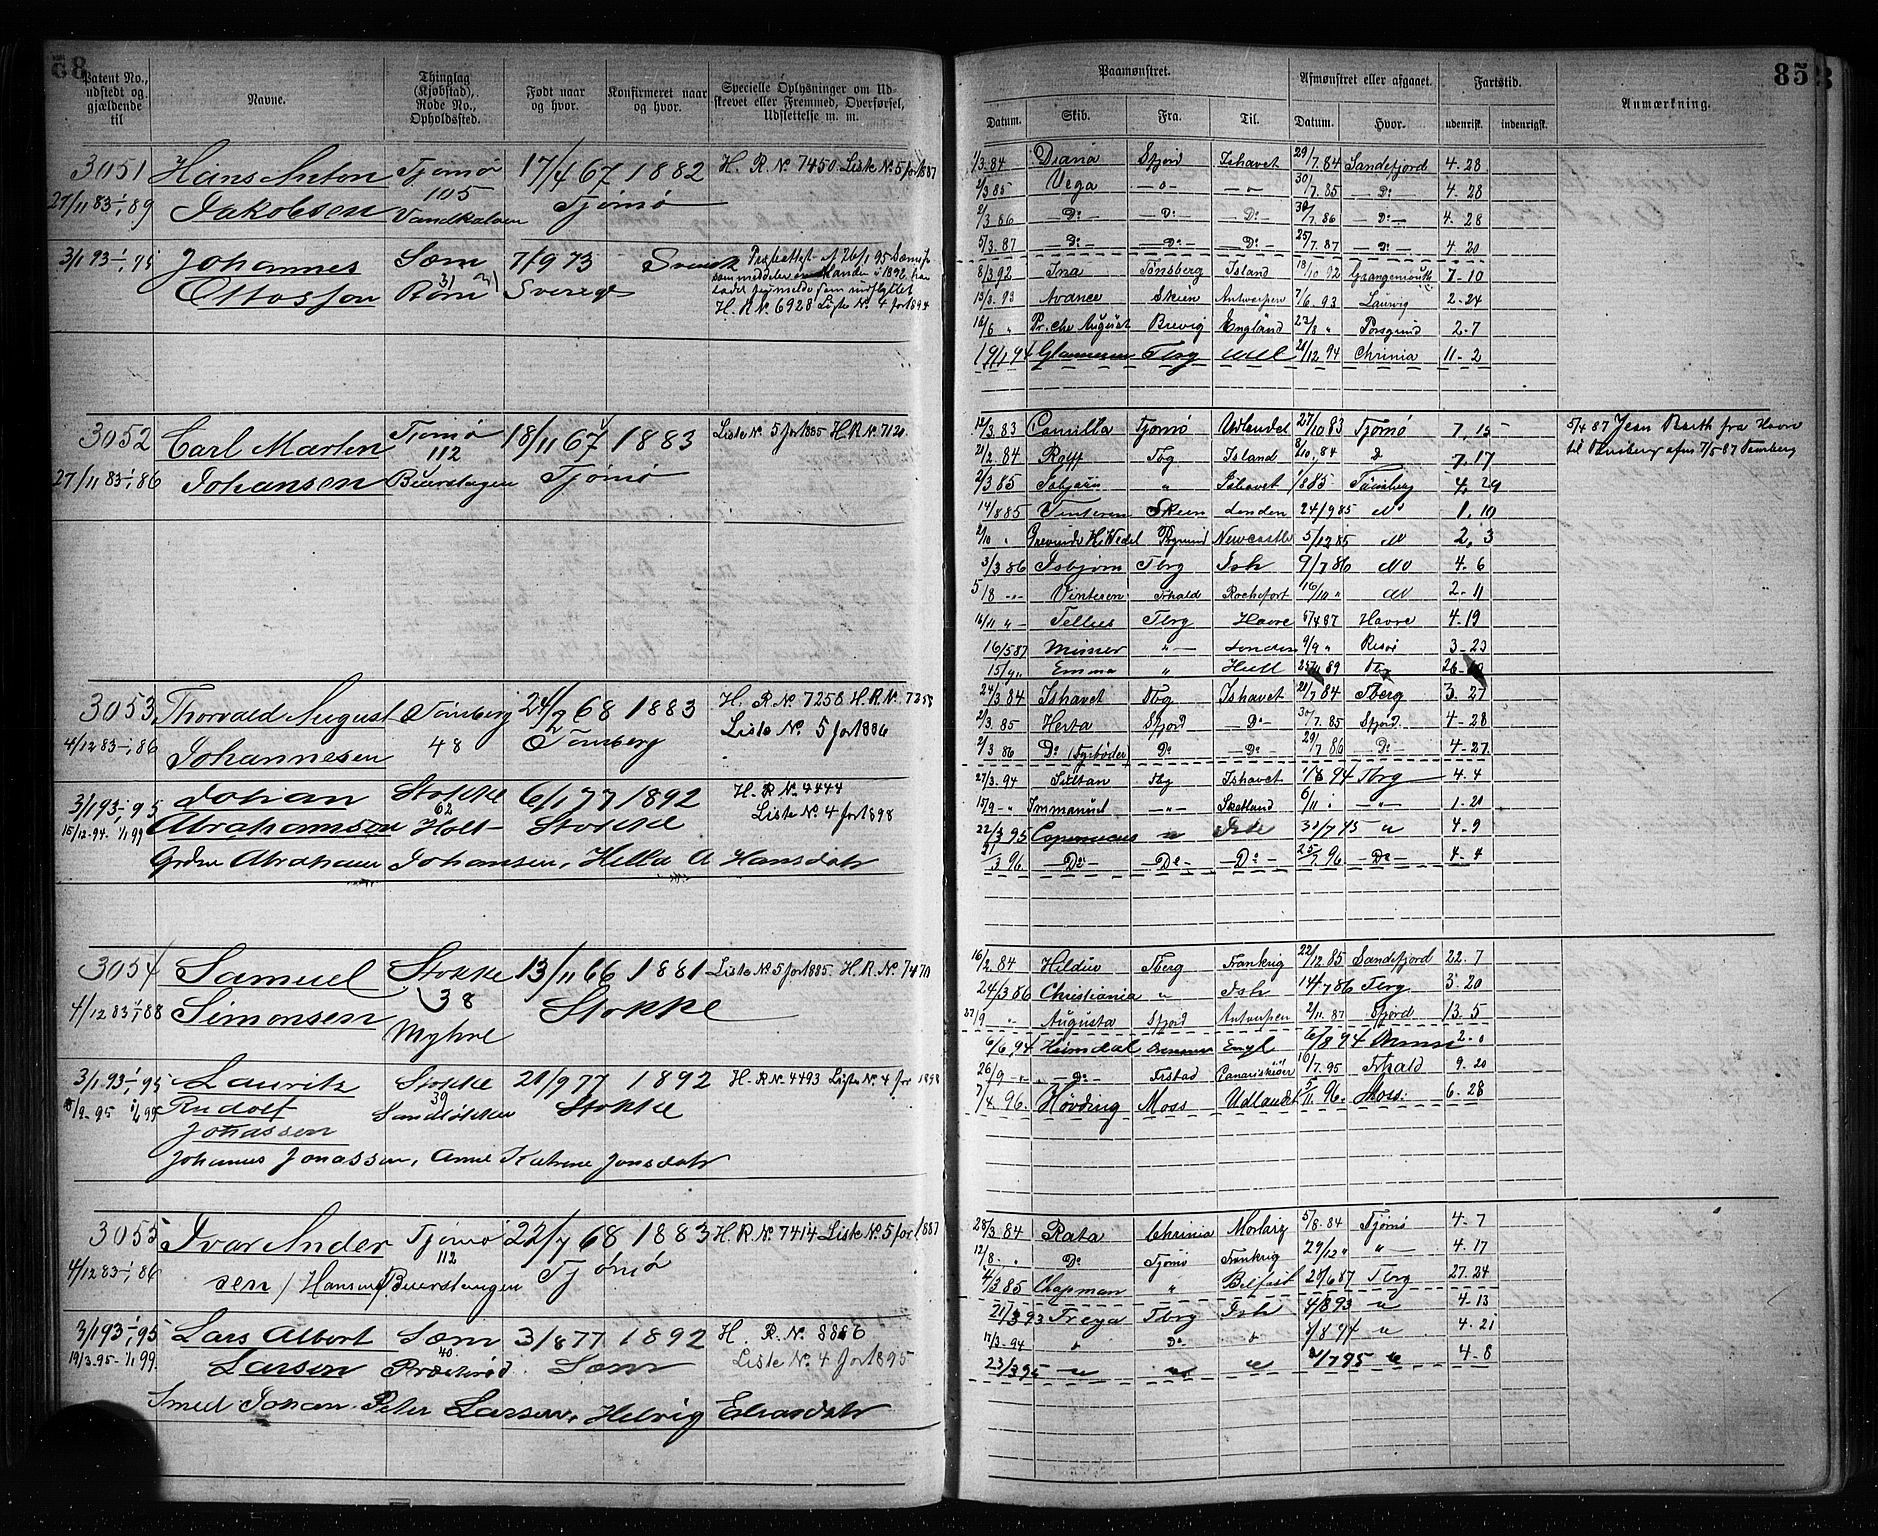 85
Patent No., udstedt og gjældende til
Navne.
Thinglag (Kjøbstad), Rode No., Opholdssted.
Født naar og hvor.
Konfirmeret naar og hvor.
Specielle Oplysninger om Udskrevet eller Fremmed, Overførsel, Udslettelse m. m.
3051 Hans Anton Tjømø 17/4 67 1882 H. R. No 7450 Liste No 5 for 1887
27/11 83 - 1/1 89 Jakobsen 105 Vandkalven Tjømø
3/1 93 - 1/1 95 Johannes Sæm 7/9 73 Svensk
Ottosson 31 Røm Sverige
H. R. No. 6928 Liste No. 4 for 1894
3052 Carl Martin Tjømø 18/11 67 1883 Liste No 5 for 1885 H. R. No. 7120
112
27/11 83 - 1/1 86 Johansen Buerstangen Tjømø
3053 Thorvald August Tønsberg 24/2 68 1883 H. R. No 7258 H. R. No. 7358
4/12 83 - 1/1 86 Johannesen 48 Tønsberg Liste No 5 for 1886
3/1 93 - 1/1 95 Johan Stokke 6/1 77 1892 H. R. No. 4444
62
15/12 94 - 1/1 99 Abrahamsen Holt Stokke Liste No. 4 for 1898
Abraham Johansen, Hella A Hansdatr
3054 Samuel Stokke 13/11 66 1881 Liste No. 5 for 1885. H. R. No. 7470
38
4/12 83 - 1/1 88 Simonsen Myhre Stokke
3/1 93 - 1/1 95 Lauritz Stokke 21/9 77 1892 H. R. No. 4493 Liste No. 4 for 1898
39
Rudolf Stokke
Jonassen
Johannes Jonassen, Anne Katrine Jonsdatr
3055 Ivar Ander Tjømø 22/7 68 1883 H. R. No. 7414 Liste No. 5 for 1887
112
4/12 83 - 1/1 86 sen / Hansen / Buerstangen Tjømø
3/1 93 - 1/1 95 Lars Albert Sæm 3/8 77 1892 H. R. No. 8886
40
19/3 95 - 1/1 99 Larsen Sæm Liste No. 4 for 1895
Smed Johan Peter Larsen, Helvig Eliasdatr
85
Paamønstret.
Afmønstret eller afgaaet.
Fartstid.
Anmærkning.
Datum. Skib. Fra. Til. Datum. Hvor. udenrigst. indenrigst.
1/3 84 Diana Sfjord Ishavet 29/7 84 Sandefjord 4 - 28
2/3 85 Vega — o — — o — 30/7 85 — Do — 4 - 28
2/3 86 — Do — — Do — — Do — 30/7 86 — Do — 4 - 28
5/3 87 — Do — — Do — — Do — 25/7 87 — Do — 4 - 20
8/3 92 Ina Tønsberg Island 18/10 92 Grangemouth 7 - 10
13/3 93 Avance Skien Antwerpen 7/6 93 Laurvig 2 - 24
Pr. Chr. August Brevig England 23/8 " Porsgrund 2 - 7
19/1 94 Tbrg Udl 21/12 94 Chrinia 11 - 2
12/3 83 Camilla Tjømø Udlandet 27/10 83 Tjømø 7, 15
21/2 84 Rolf Tbg Island 8/10 84 D 7, 17
2/3 85 Isbjørn " Ishavet 1/8 85 Tønsberg 4, 29
14/8 85 Vinteren Skien London 24/9 85 1, 10
2/10 " Grevinde H. Wedel Pgrund Newcastle 5/12 85 2, 3
3/3 86 Isbjørn Tbrg Ish 9/7 86 4 - 6
5/8 - " - Vinteren Frhald Rochefort 16/10 " 2 - 11
16/11 " - Tellus Tbrg Havre 5/4 87 Havre 4 - 19
16/5 87 " - London 9/9 " Risør 3 - 23
15/9 " Emma " Hull 25/11 89 Tbg
5/4 87 Jean Barth fra Havre
til Tønsberg afm 7/5 87 Tønsberg
24/3 84 Ishavet Tbg Ishavet 21/7 84 Tberg 3 - 27
2/3 85 Herta Sfjord — Do — 30/7 85 Sfjord. 4 - 28
2/3 86 Do Do — Do — 29/7 86 — Do — 4 - 27
27/3 94 Tbg Ishavet 1/8 94 Tbrg 4 - 4
15/9 - " Immanuel — " — Skotland 6/11 " — " — 1 - 21
22/3 95 Copernicus " Ish 31/7 95 " 4 - 9
21/3 96 — Do — — Do — — Do — 25/7 96 — Do — 4 - 4
16/2 84 Hildur Tberg Frankrig 22/12 85 Sandefjord 22. 7
24/3 86 Christiania " Ish 14/7 86 Tbrg 3 - 20
27/9 " Augusta Sfjord Antwerpen 2/11 87 Sfjord 13. 5
6/6 94 Heimdal Engl 6/8 94 2 - 0
26/9 - " - — Do — Frstad Canariskøer 10/7 95 Frhald 9. 20
7/4 96. Høvding Moss Udlandet 5/11 96. Moss. 6 - 28
28/3 84 Rata Chrinia 5/8 84 Tjømø 4 - 7
12/8 " Do Tjømø Frankrig 29/12 " " — 4 - 17
4/3 85 Chapman " Belfast 28/6 87 Tbrg 27. 24
21/3 93 Freya Tbrg Ish 4/8 93 " 4 - 13
17/3 94 " Do " 8/8 94 " 4 - 21
23/3 95 " " " 7 95 " 4 - 8